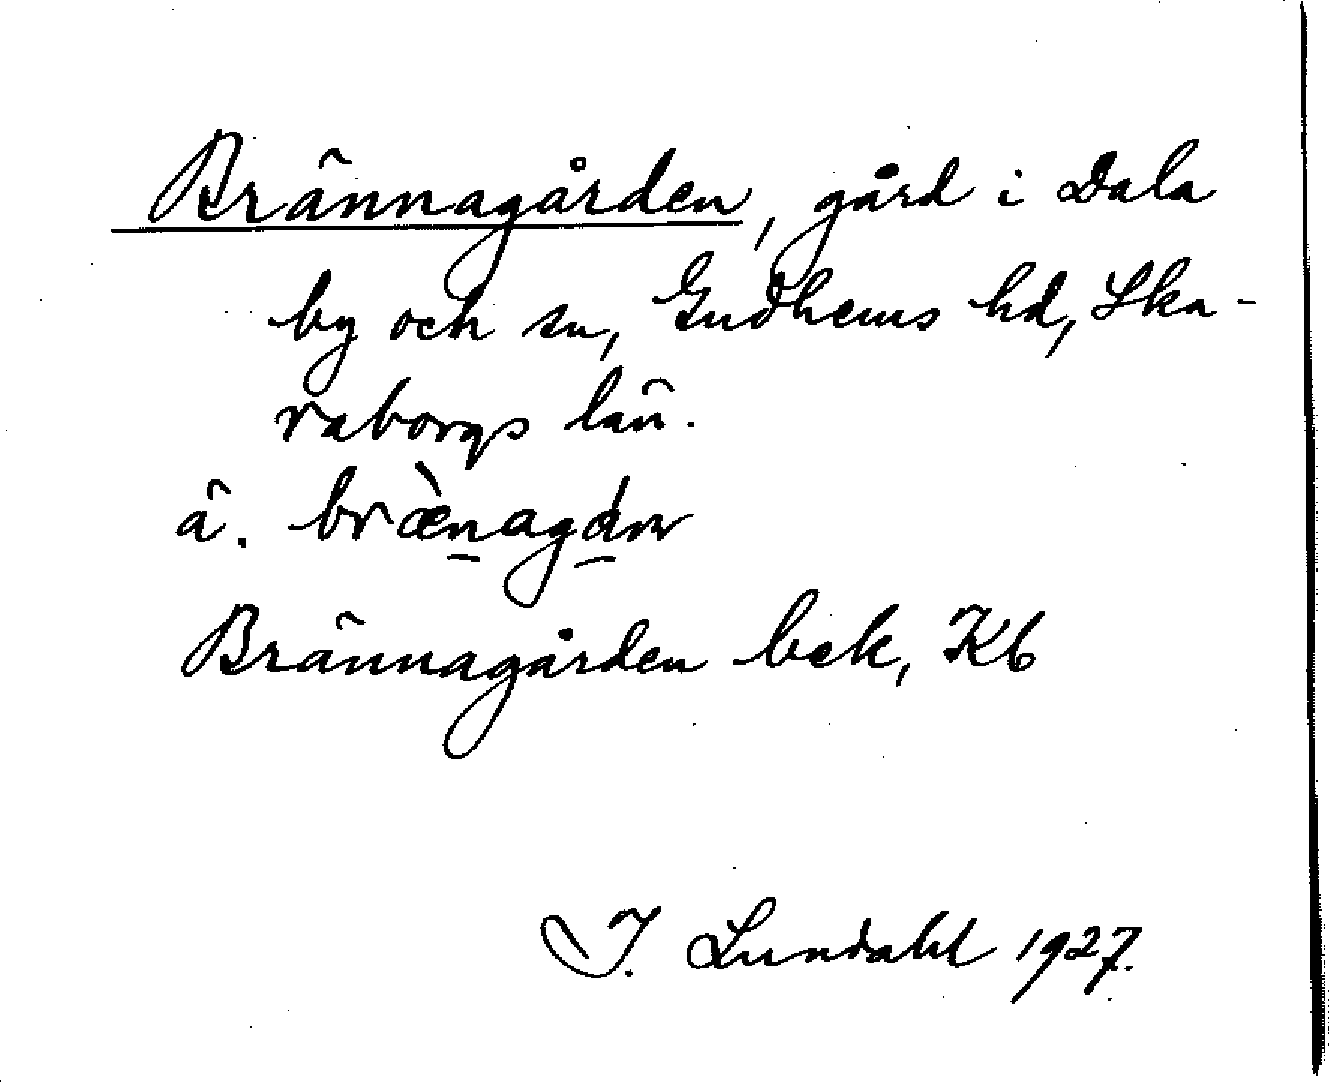 Brännagården, gård i Dala
by och sn, Gudhems hd, Ska-
raborgs län.
ä. bræ̀nagɑ́n
Brännagården bek, Kb
I. Lundahl 1927.